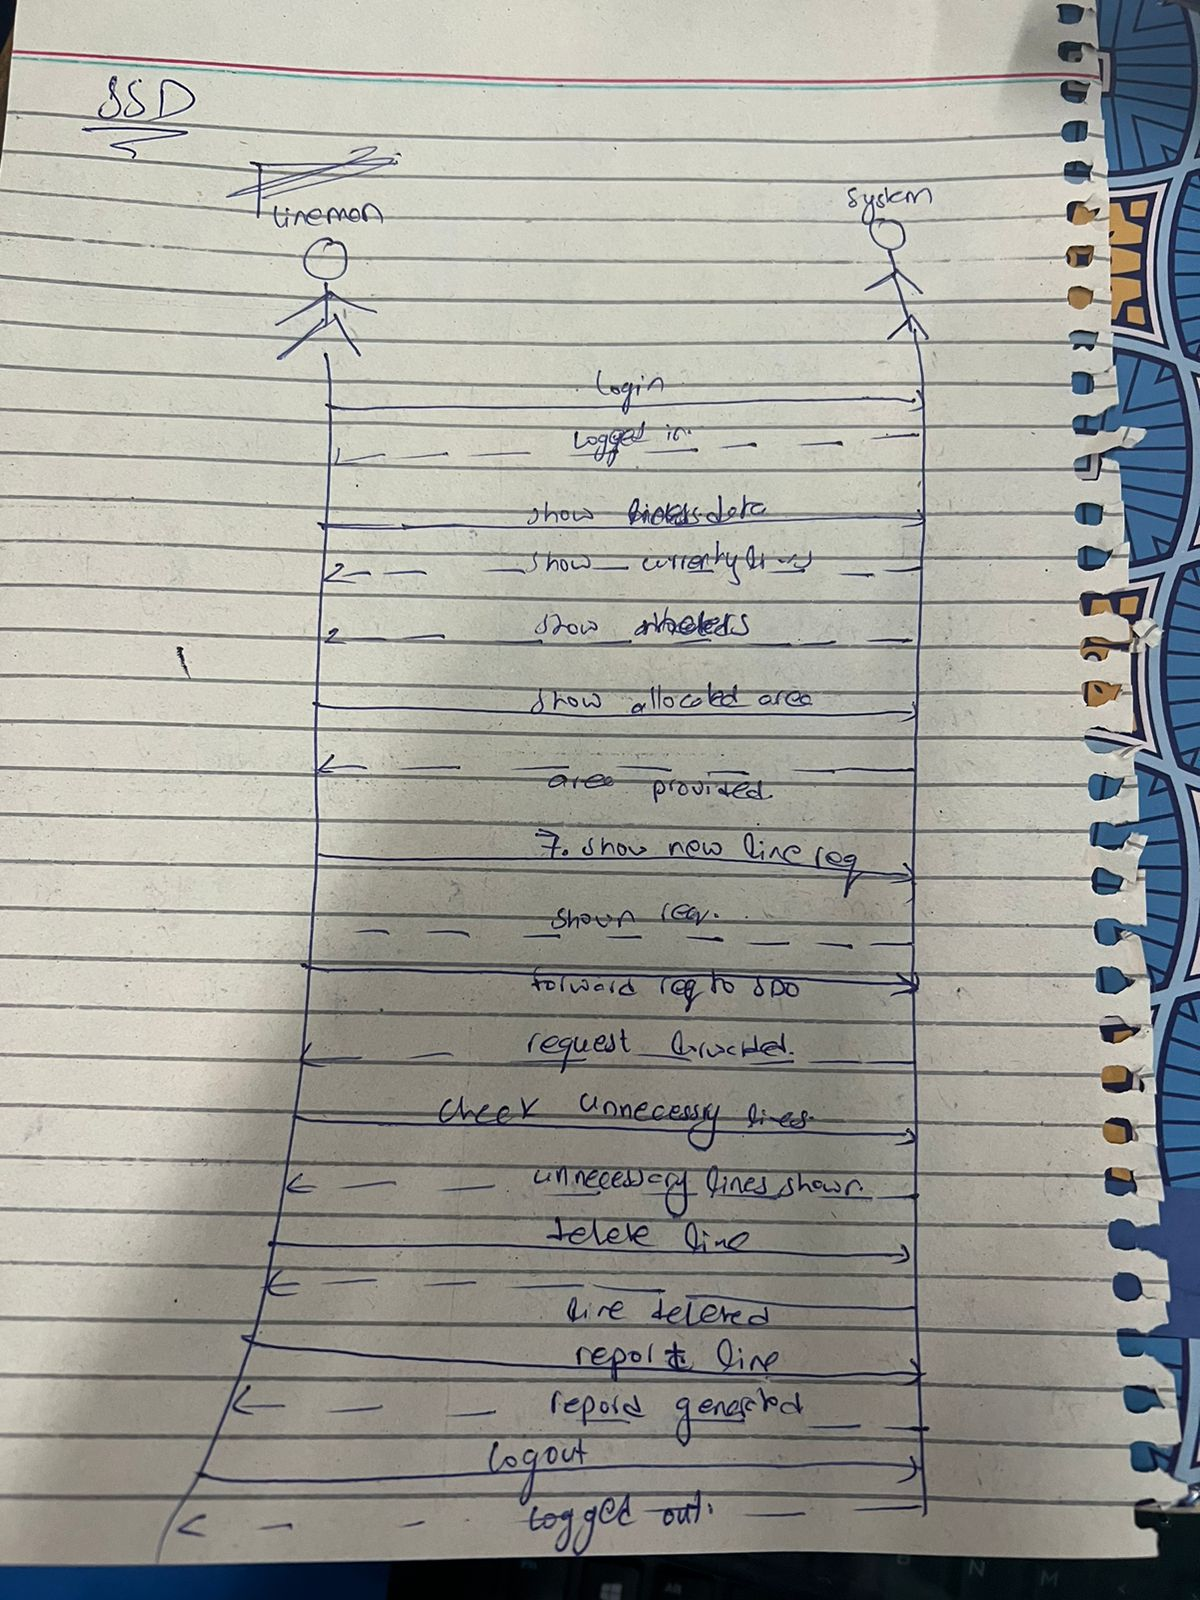 SSD
Lineman
System
login
logged in.
show data
show currently lines
show
show allocated area
area provided
7. show new line req
shown req.
forward req to SDO
request
check unnecessry lines.
unnecessary lines shown.
delete line
line deleted
report line
generated
logout
logged out.